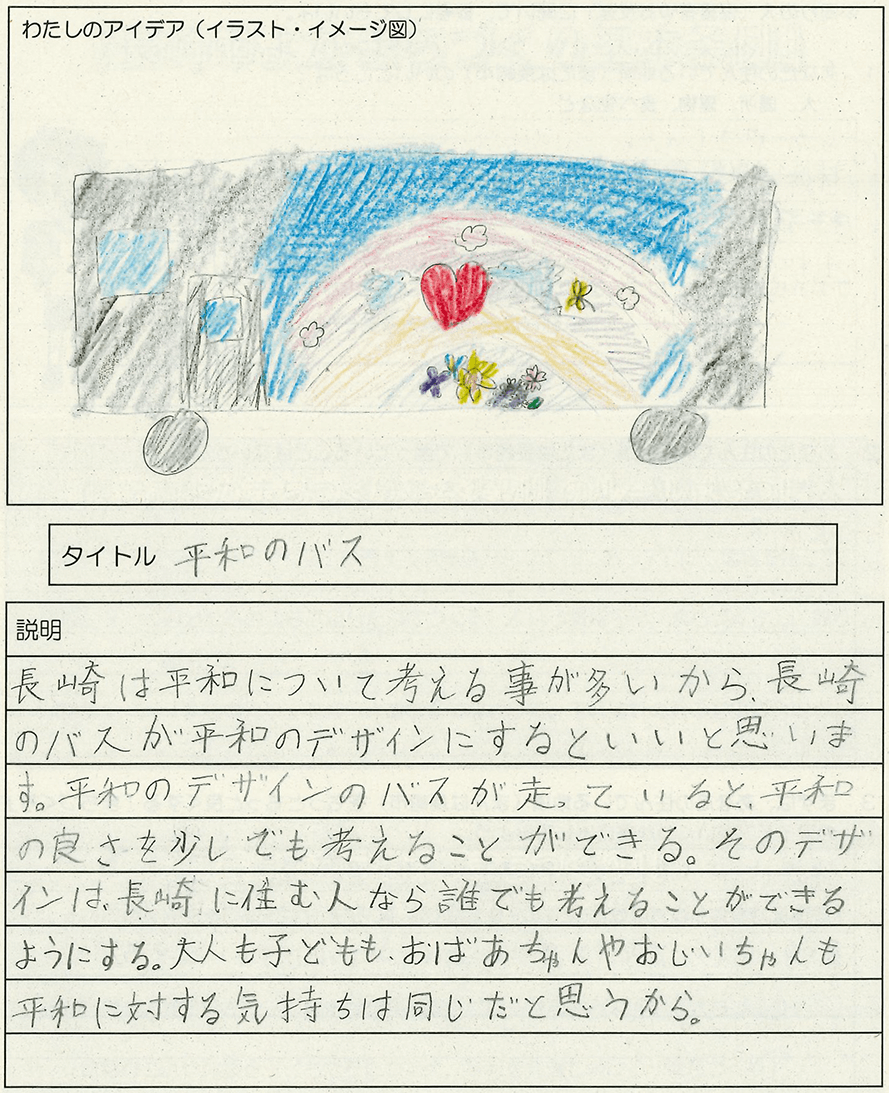 わたしのアイデア（イラスト・イメージ図）
タイトル 平和のバス
説明
長崎は平和について考える事が多いから、長崎
のバスが平和のデザインにするといいと思いま
す。平和のデザインのバスが走っていると、平和
の良さを少しでも考えることができる。そのデザ
インは、長崎に住む人なら誰でも考えることができる
ようにする。大人も子どもも、おばあちゃんやおじいちゃんも
平和に対する気持ちは同じだと思うから。